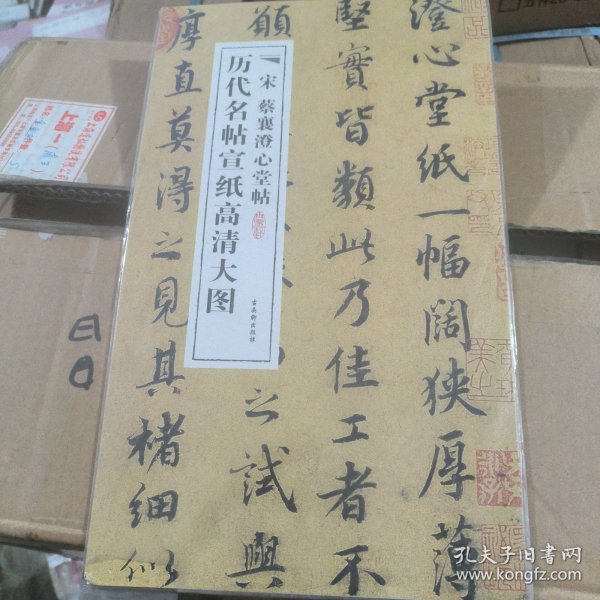 澄心堂紙一幅闊狹厚薄
堅實皆類此乃佳工者不
願
之試與
厚直莫得之見其楮細似
宋 蔡襄澄心堂帖
历代名帖宣纸高清大图
古吴轩出版社
孔夫子旧书网
www.kongfz.com